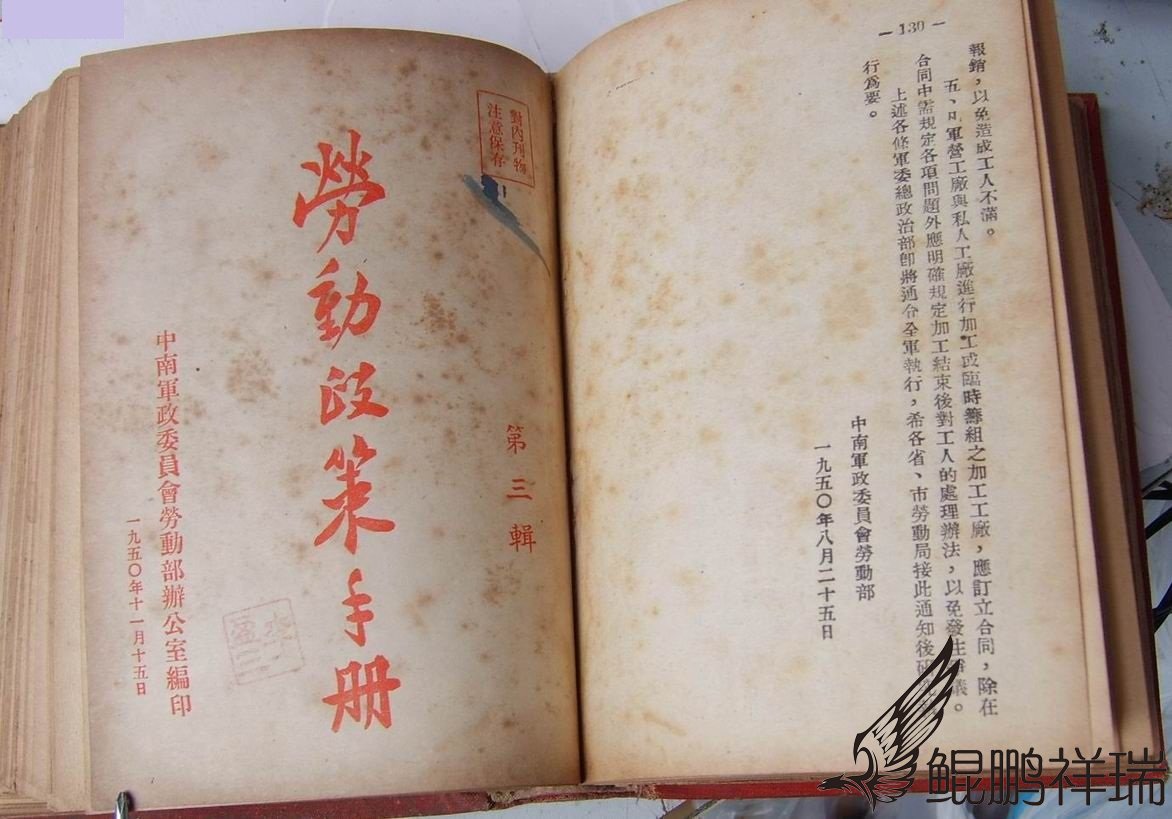 —130—
報銷，以免造成工人不滿。
五、凡軍營工廠與私人工廠進行加工或臨時籌組之加工工廠，應訂立合同，除在
合同中需規定各項問題外應明確規定加工結束後對工人的處理辦法，以免發生爭議。
上述各條軍委總政治部卽將通令全軍執行，希各省、市勞動局接此通知後
行爲要。
中南軍政委員會勞動部
一九五〇年八月二十五日
對內刋物
注意保存
第三輯
勞動政策手册
中南軍政委員會勞動部辦公室編印
一九五〇年十一月十五日
鲲鹏祥瑞